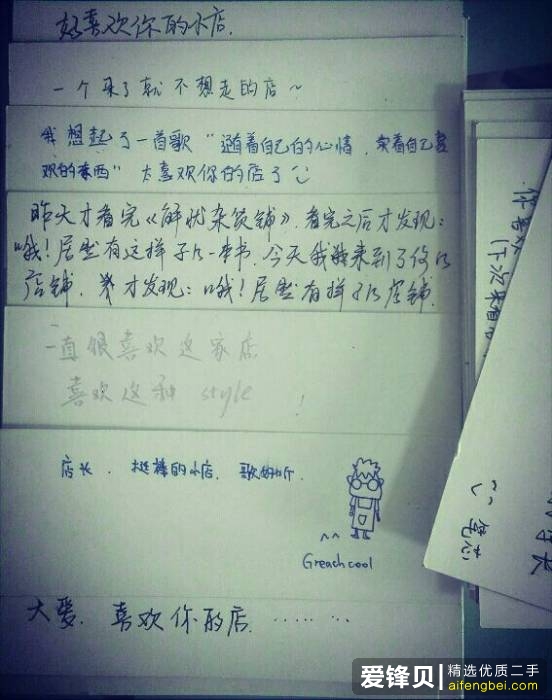 好喜欢你的小店.
一个来了就不想走的店～
我想起了一首歌“随着自己的心情,卖着自己喜
欢的东西” 太喜欢你的店了
昨天才看完《解忧杂货铺》,看完之后才发现:
哦!居然有这样子的一本书.今天我来到了你的
店铺,才发现:哦!居然有样子的店铺.
一直很喜欢这家店
喜欢这种 style !
店长.挺棒的小店.歌好听.
^^
Greachcool
大爱.喜欢你的店.……
你喜欢
(下次来看
店长
^^ 笔芯
爱锋贝 精选优质二手
aifengbei.com